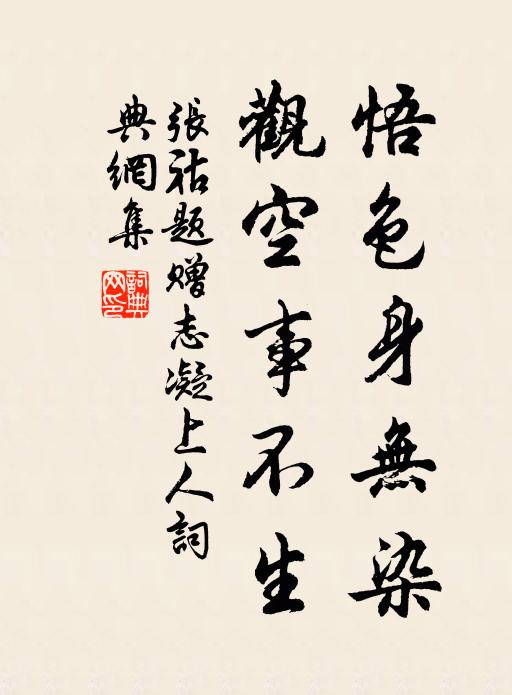 悟色身無染
觀空事不生
張祜題贈志凝上人詞
典網集
詞典網印